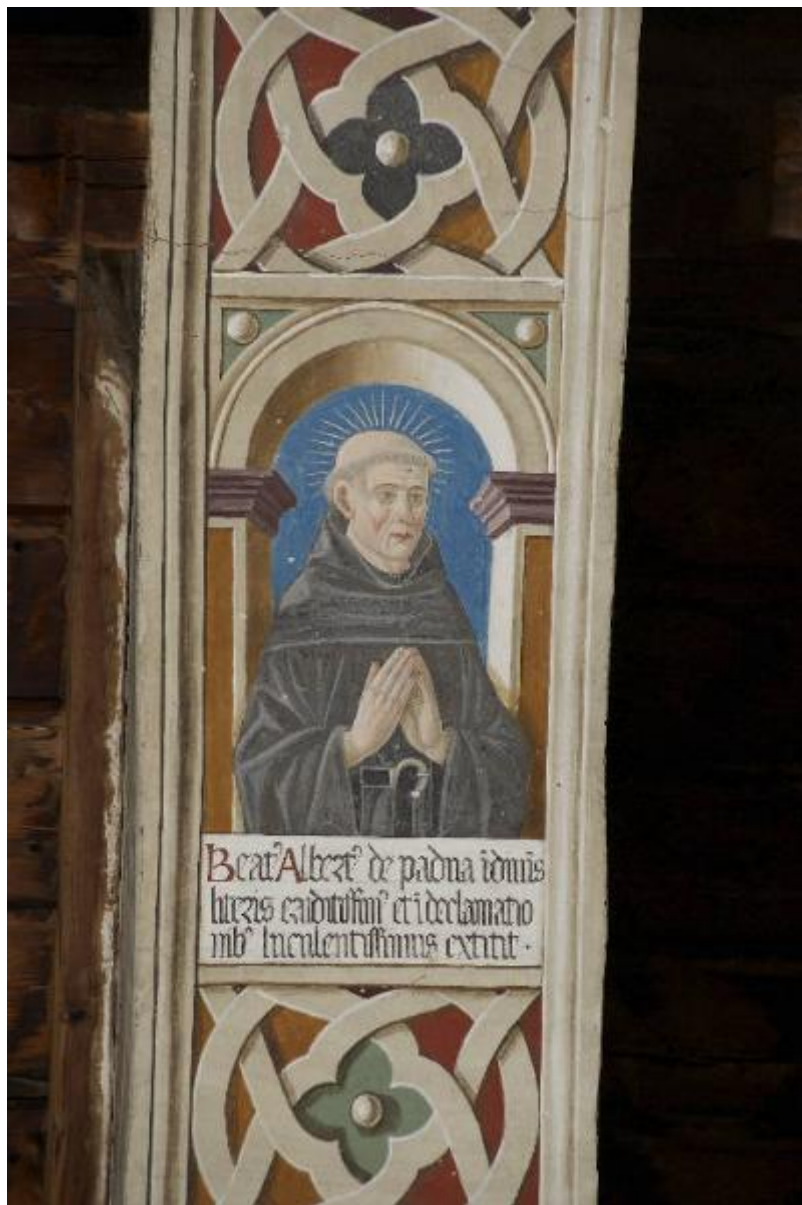 Beat⁹ Albert⁹ de padua ī diuīs
literis eruditissim⁹ et ī declamatio
nib⁹ luculentissimus extitit ·